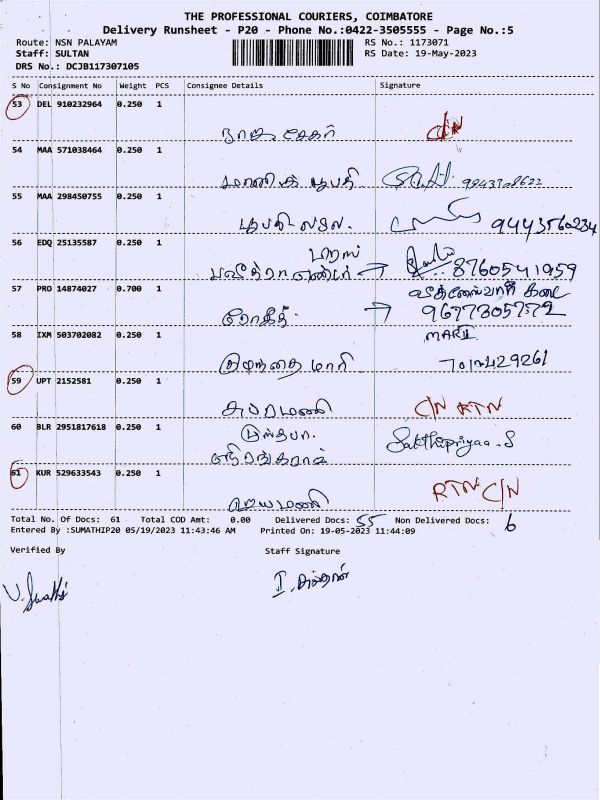 THE PROFESSIONAL COURIERS, COIMBATORE
Delivery Runsheet - P20 - Phone No.:0422-3505555 - Page No.:5
Route: NSN PALAYAM RS No.: 1173071
Staff: SULTAN RS Date: 19-May-2023
DRS No.: DCJB117307105
S No Consignment No Weight PCS Consignee Details Signature
53 DEL 910232964 0.250 1
C/N
54 MAA 571038464 0.250 1
55 MAA 298450755 0.250 1
9443560234
56 EDQ 25135587 0.250 1
8760541959
57 PRO 14874027 0.700 1
கடை
ரோகித் → 9677305772
58 IXM 503702082 0.250 1 MARI
குழந்தை மாரி
59 UPT 2152581 0.250 1
சுப்ரமணி C/N RTN
60 BLR 2951817618 0.250 1
Sakthipriyaa.S
61 KUR 529633543 0.250 1
ஜெயமணி RTN C/N
Total No. Of Docs: 61 Total COD Amt: 0.00 Delivered Docs: 55 Non Delivered Docs: 6
Entered By :SUMATHIP20 05/19/2023 11:43:46 AM Printed On: 19-05-2023 11:44:09
Verified By Staff Signature